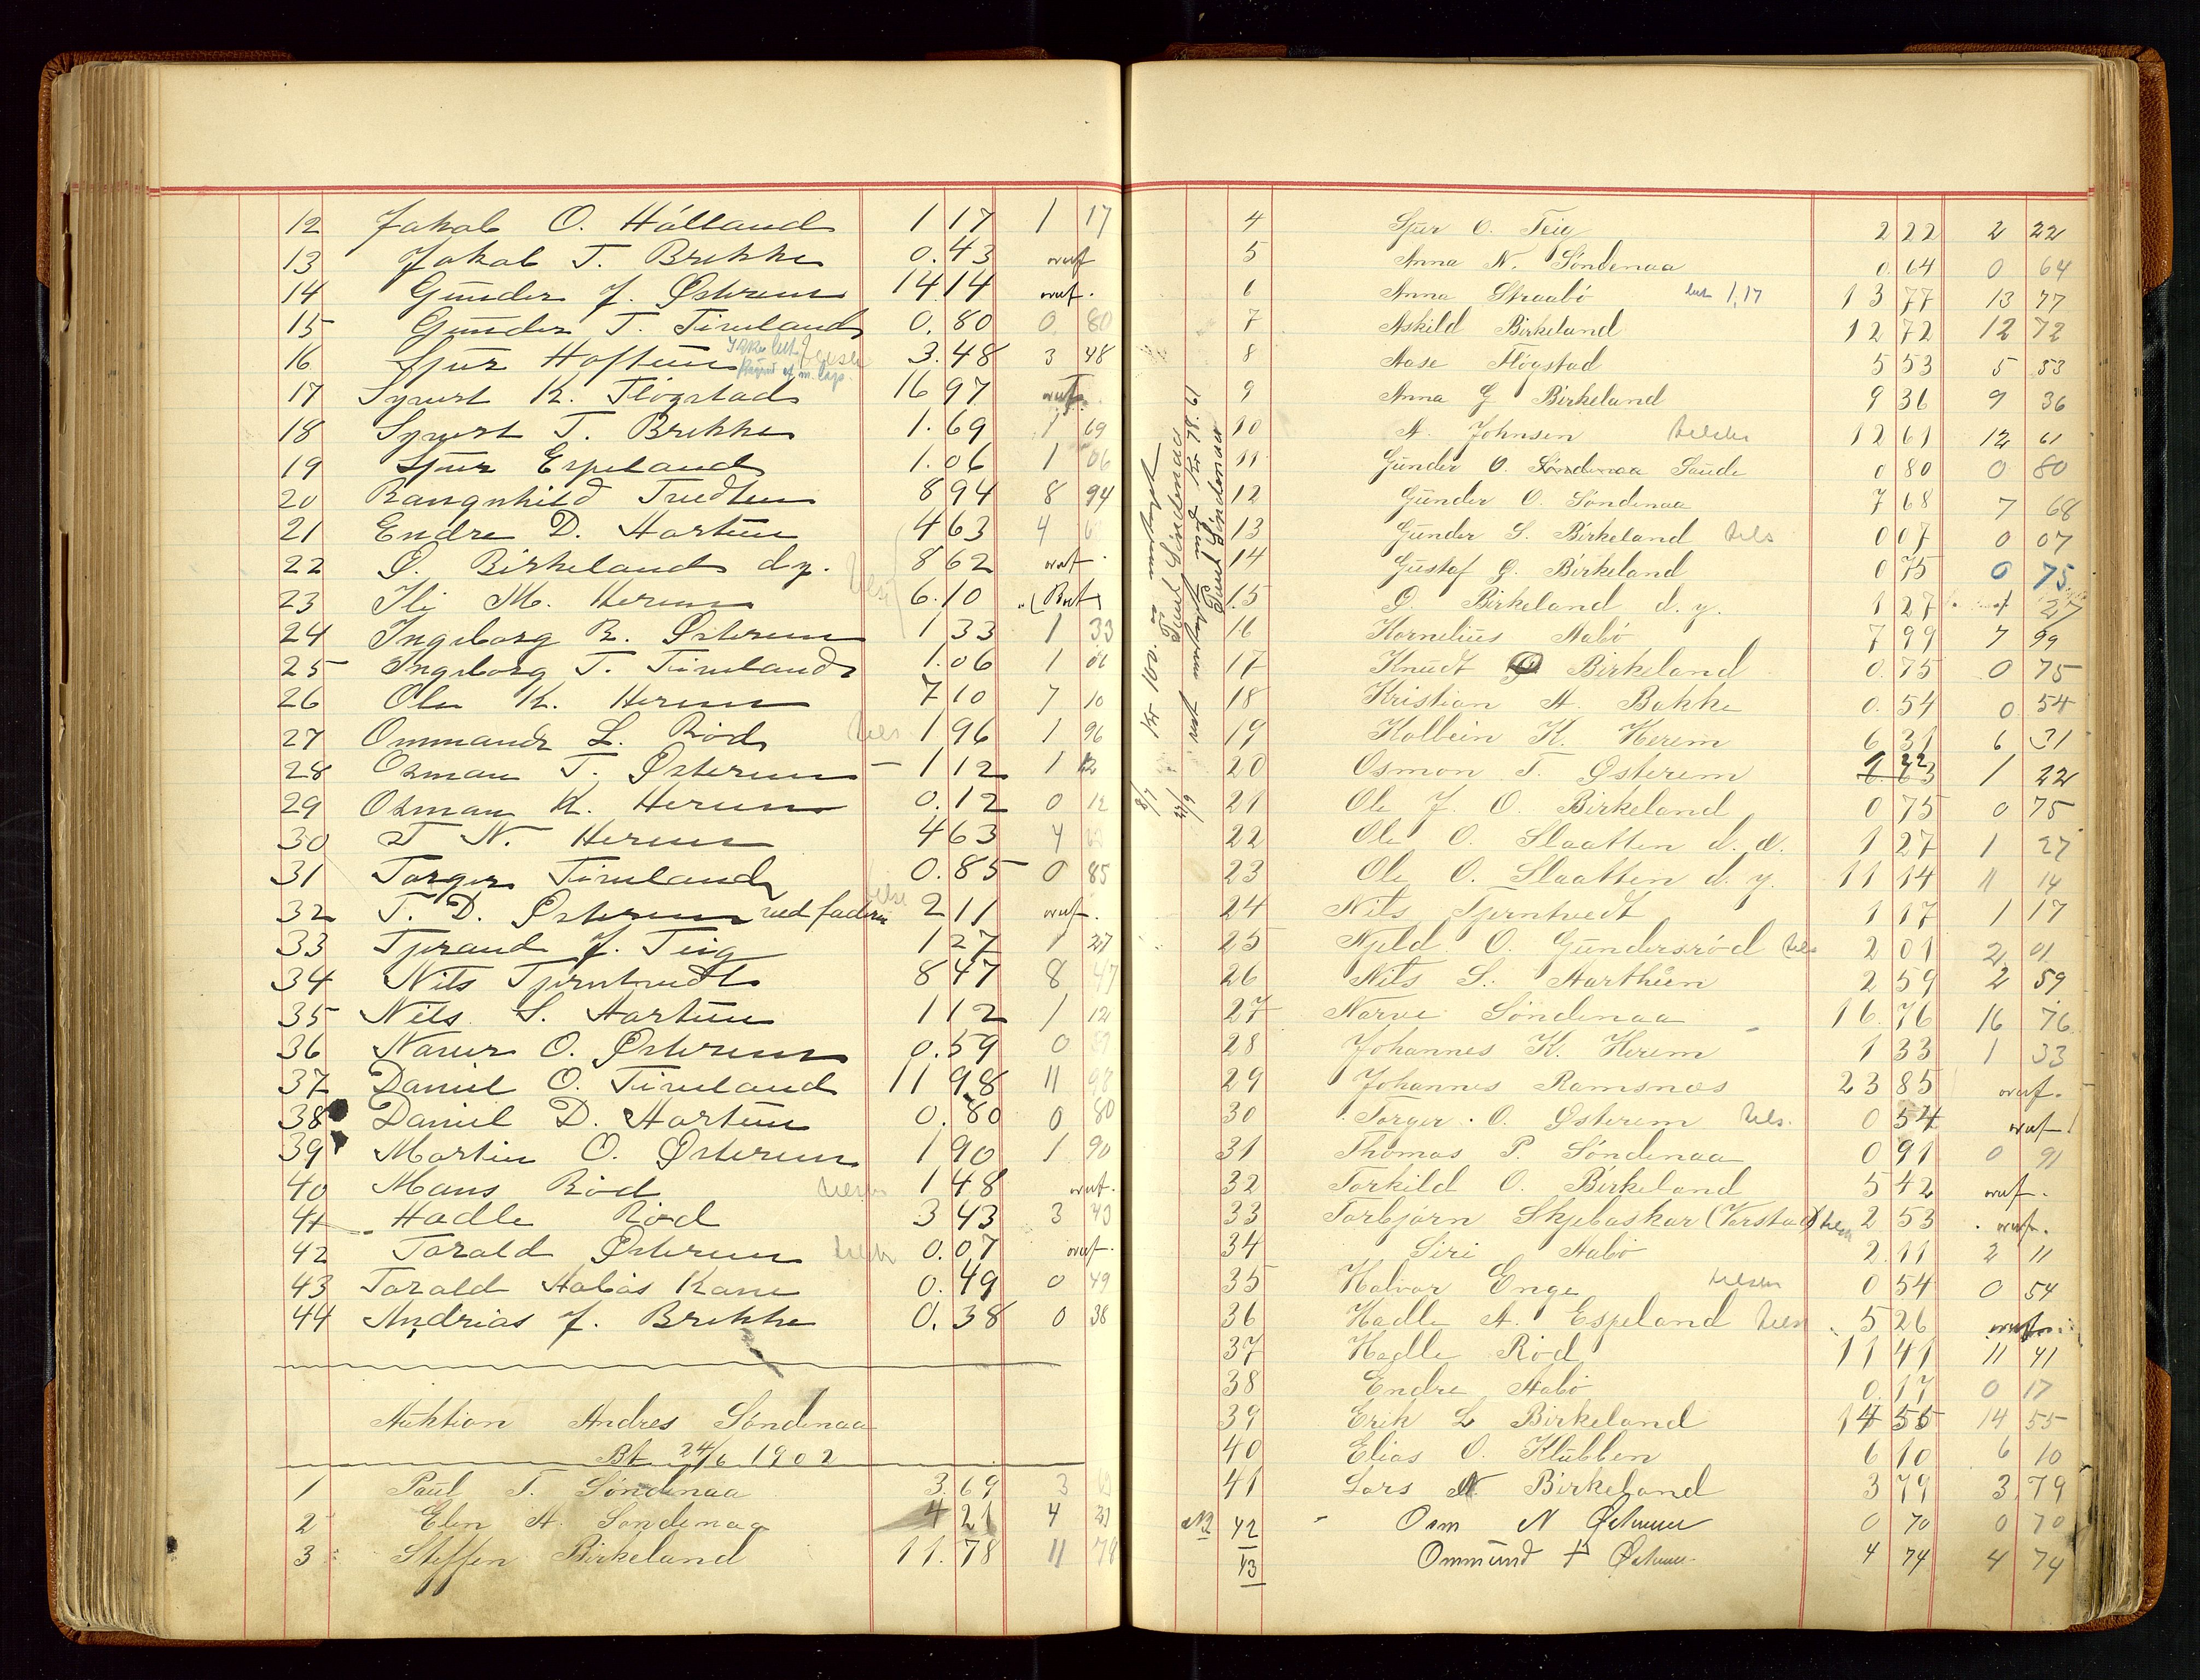 12 Jakob O. Hålland 1 17 1 17
13 Jakob T. Brekke 0.43
14 Gunder J. Østerem 14 14
15 Gunder T. Timeland 0.80 0 80
16 Sjur Haftun 3.48 3 48
17 Syvert K. Fløgstad 16 97
18 Syvert T. Brekke 1.69 1 69
19 Sjur Espeland 1.06 1 06
20 Rangnhild Tvedten 8 94 8 94
21 Endre D. Hartun 4 63 4
22 O. Birkeland d.y. 8 62
23 M. Herem 6.10
24 Ingeborg R. Østerem 1 33 1 33
25 Ingeborg T. Timeland 1.06 1 06
26 Ole K. Herem 7 10 7 10
27 Ommand L. Rød 1 96 1 96
28 Osman T. Østerem 1 12 1 12
29 Osman K. Herem 0.12 0 12
30 T N. Herem 4 63 4
31 Torger Timeland 0.85 0 85
32 T. D. Østerem ved faderen 2 11
33 Tjerand J. Teig 1 27 1 27
34 Nils Tjerntvedt 8 47 8 47
35 Nils S. Hartun 1 12 1 12
36 O. Østerem 0.59 0 59
37 Daniel O. Timeland 11 98 11 98
38 Daniel D. Hartun 0.80 0 80
39 Martin O. Østerem 1 90 1 90
40 Mans Rød 1 48
41 Hadle Rød 3 43 3 43
42 Torald Østerem 0.07
43 Torald Aabøs Kone 0.49 0 49
44 Andrias J. Brekke 0.38 0 38
Auktion Andres Søndenaa
24/6 1902
1 Paul T. Søndenaa 3.69 3
2 Elen A. Søndenaa 4 21 4 21
3 Steffen Birkeland 11.78 11 78
4 Sjur O. 2 22 2 22
5 Anna N. Søndenaa 0.64 0 64
6 Anna Straabø 1,17 13 77 13 77
7 Askild Birkeland 12 72 12 72
8 Aase Fløgstad 5 53 5 53
9 Anna G Birkeland 9 36 9 36
10 A. Johnsen 12 61 12 61
11 Gunder O. Søndenaa Sande 0 80 0 80
12 Gunder O. Søndenaa 7 68 7 68
13 Gunder S. Birkeland 0 07 0 07
14 Gustaf G. Birkeland 0 75 0 75
15 O. Birkeland d.y. 1 27 1 27
16 Kornelius Aabø 7 99 7 99
17 Knudt O Birkeland 0.75 0 75
18 Kristian A. Bakke 0.54 0 54
19 Kolbein K. Herem 6 31 6 31
20 Osmon T. Østerem 1 22 1 22
21 Ole J. O. Birkeland 0 75 0 75
22 Ole O. Slaatten d.æ. 1 27 1 27
23 Ole O. Slaatten d.y. 11 14 11 14
24 Nils Tjerntvedt 1 17 1 17
25 Njeld O. Gundersrød 2 01 2 01
26 Nils S. Harthun 2 59 2 59
27 Narve Søndenaa 16.76 16 76
28 Johannes K. Herem 1 33 1 33
29 Johannes Ramsnæs 23 85
30 Torger O. Østerem 0 54
31 Thomas P. Søndenaa 0 91 0 91
32 Torkild O. Birkeland 5 42
33 Torbjørn Skjebaskar 2 53
34 Siri Aabø 2.11 2 11
35 Halvor Enge 0 54 0 54
36 Hadle A. Espeland 5 26
37 Hadle Rød 11 41 11 41
38 Endre Aabø 0.17 0 17
39 Erik L Birkeland 14 55 14 55
40 Elias O. Klubben 6 10 6 10
41 Lars N Birkeland 3 79 3.79
42 Osm N Østerem 0 70 0 70
43 Ommund T Østerem 4 74 4 74